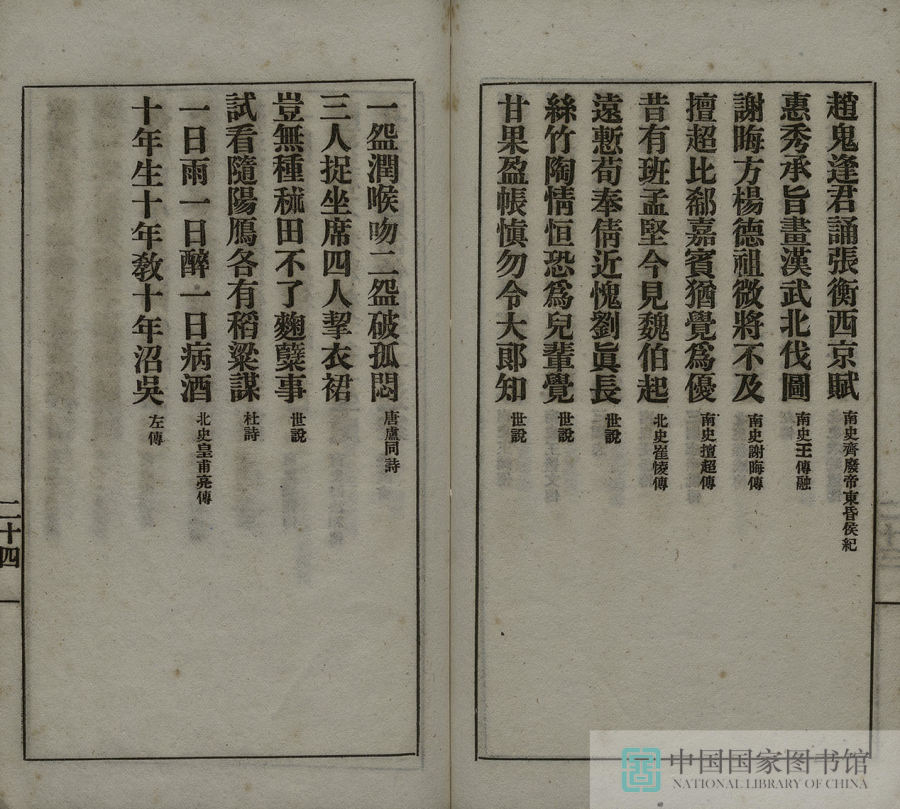 趙鬼逢君誦張衡西京賦 南史齊廢帝東昏侯紀
惠秀承旨畫漢武北伐圖 南史王傳融
謝晦方楊德祖微將不及 南史謝晦傳
擅超比郗嘉賓猶覺爲優 南史擅超傳
昔有班孟堅今見魏伯起 北史崔㥄傳
遠慙荀奉倩近愧劉眞長 世說
絲竹陶情恒恐爲兒輩覺 世說
甘果盈帳愼勿令大郎知 世說
一盌潤喉吻二盌破孤悶 唐盧同詩
三人捉坐席四人挈衣裙
豈無種秫田不了麴糱事 世說
試看隨陽鴈各有稻粱謀 杜詩
一日雨一日醉一日病酒 北史皇甫亮傳
十年生十年教十年沼吳 左傳
二十四
中国国家图书馆
NATIONAL LIBRARY OF CHINA